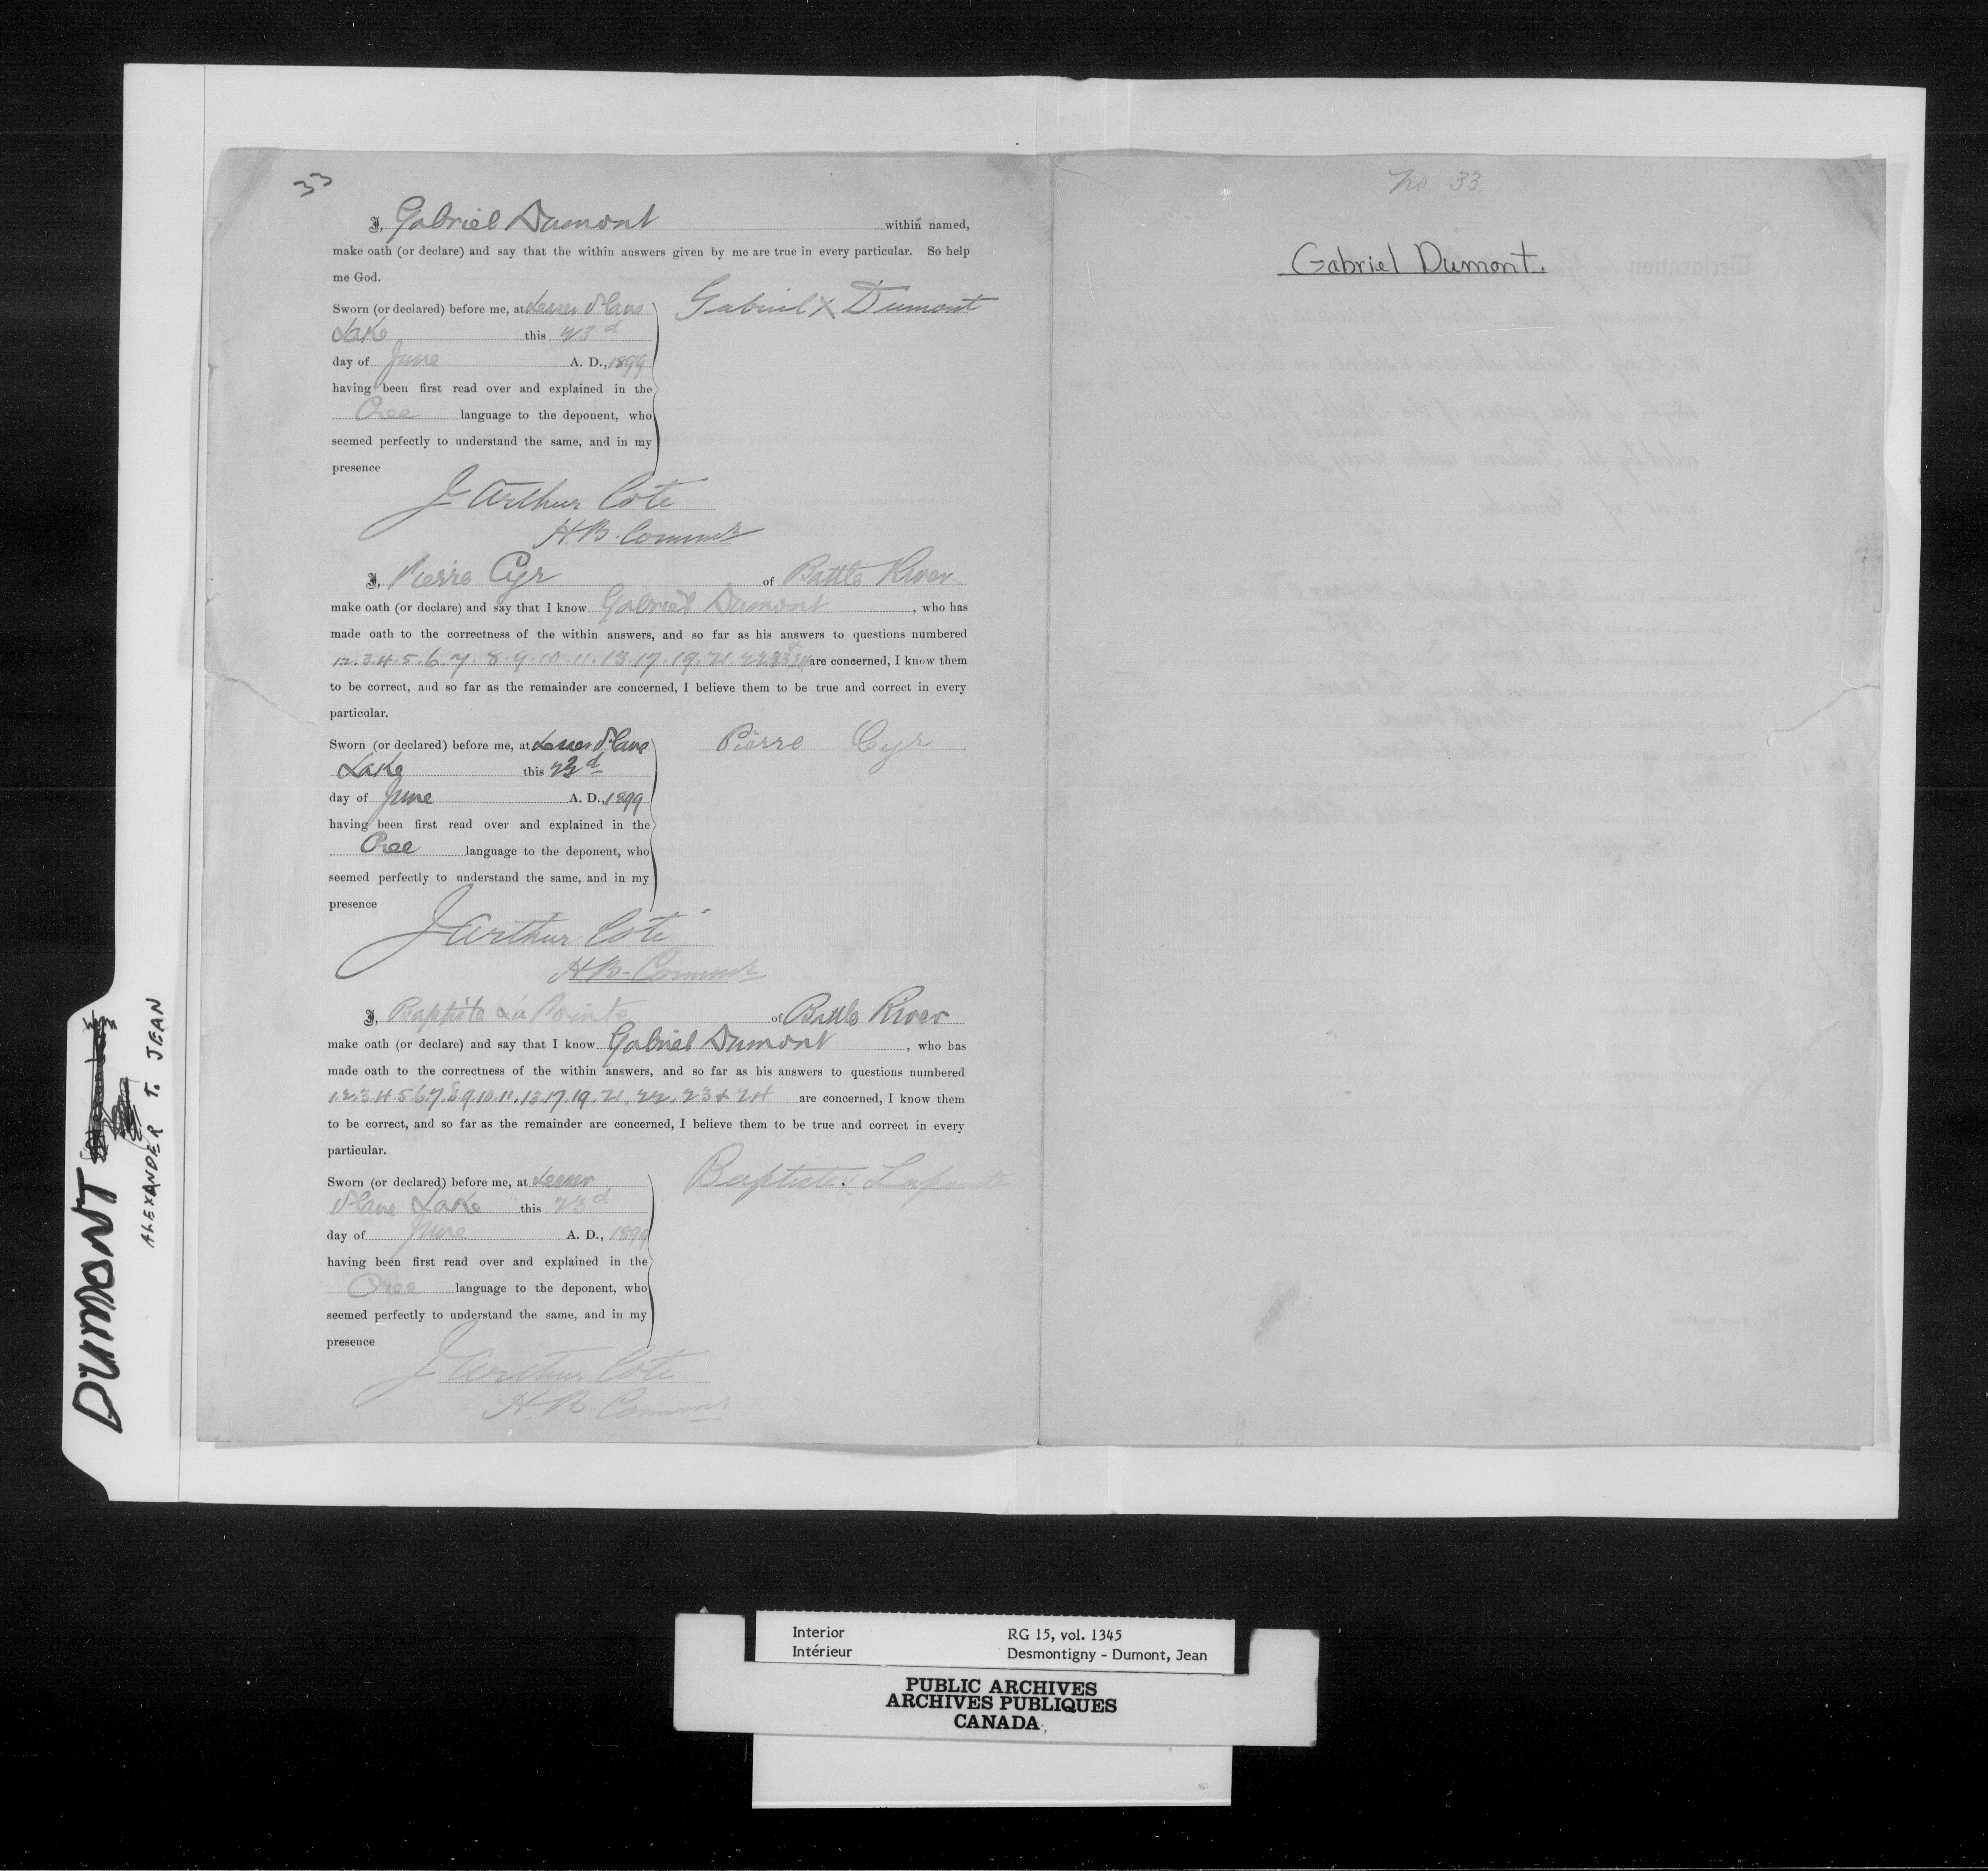 33
I, Gabriel Dumont within named,
make oath (or declare) and say that the within answers given by me are true in every particular. So help
me God.
Sworn (or declared) before me, at Lesser Slave
Lake this 23d
day of June A. D., 1899
having been first read over and explained in the
Cree language to the deponent, who
seemed perfectly to understand the same, and in my
presence
Gabriel X Dumont
J Arthur Cote
H.B. Commr
I, Pierre Cyr of Battle River
make oath (or declare) and say that I know Gabriel Dumont, who has
made oath to the correctness of the within answers, and so far as his answers to questions numbered
1.2.3.4.5.6.7.8.9.10.11.13.17.19.21.22.23 & 24 are concerned, I know them
to be correct, and so far as the remainder are concerned, I believe them to be true and correct in every
particular.
Sworn (or declared) before me, at Lesser Slave
Lake this 23d
day of June A. D., 1899
having been first read over and explained in the
Cree language to the deponent, who
seemed perfectly to understand the same, and in my
presence
Pierre Cyr
J Arthur Coté
H.B. Commr
I, Baptiste La Pointe of Battle River
make oath (or declare) and say that I know Gabriel Dumont, who has
made oath to the correctness of the within answers, and so far as his answers to questions numbered
1.2.3.4.5.6.7.8.9.10.11.13.17.19.21.22.23 & 24 are concerned, I know them
to be correct, and so far as the remainder are concerned, I believe them to be true and correct in every
particular.
Sworn (or declared) before me, at Lesser
Slave Lake this 23d
day of June A. D., 1899
having been first read over and explained in the
Cree language to the deponent, who
seemed perfectly to understand the same, and in my
presence
Baptiste X Lapointe
J Arthur Cote
H.B. Commr
No. 33.
Gabriel Dumont.
DUMONT
ALEXANDER T. JEAN
Interior RG 15, vol. 1345
Intérieur Desmontigny - Dumont, Jean
PUBLIC ARCHIVES
ARCHIVES PUBLIQUES
CANADA